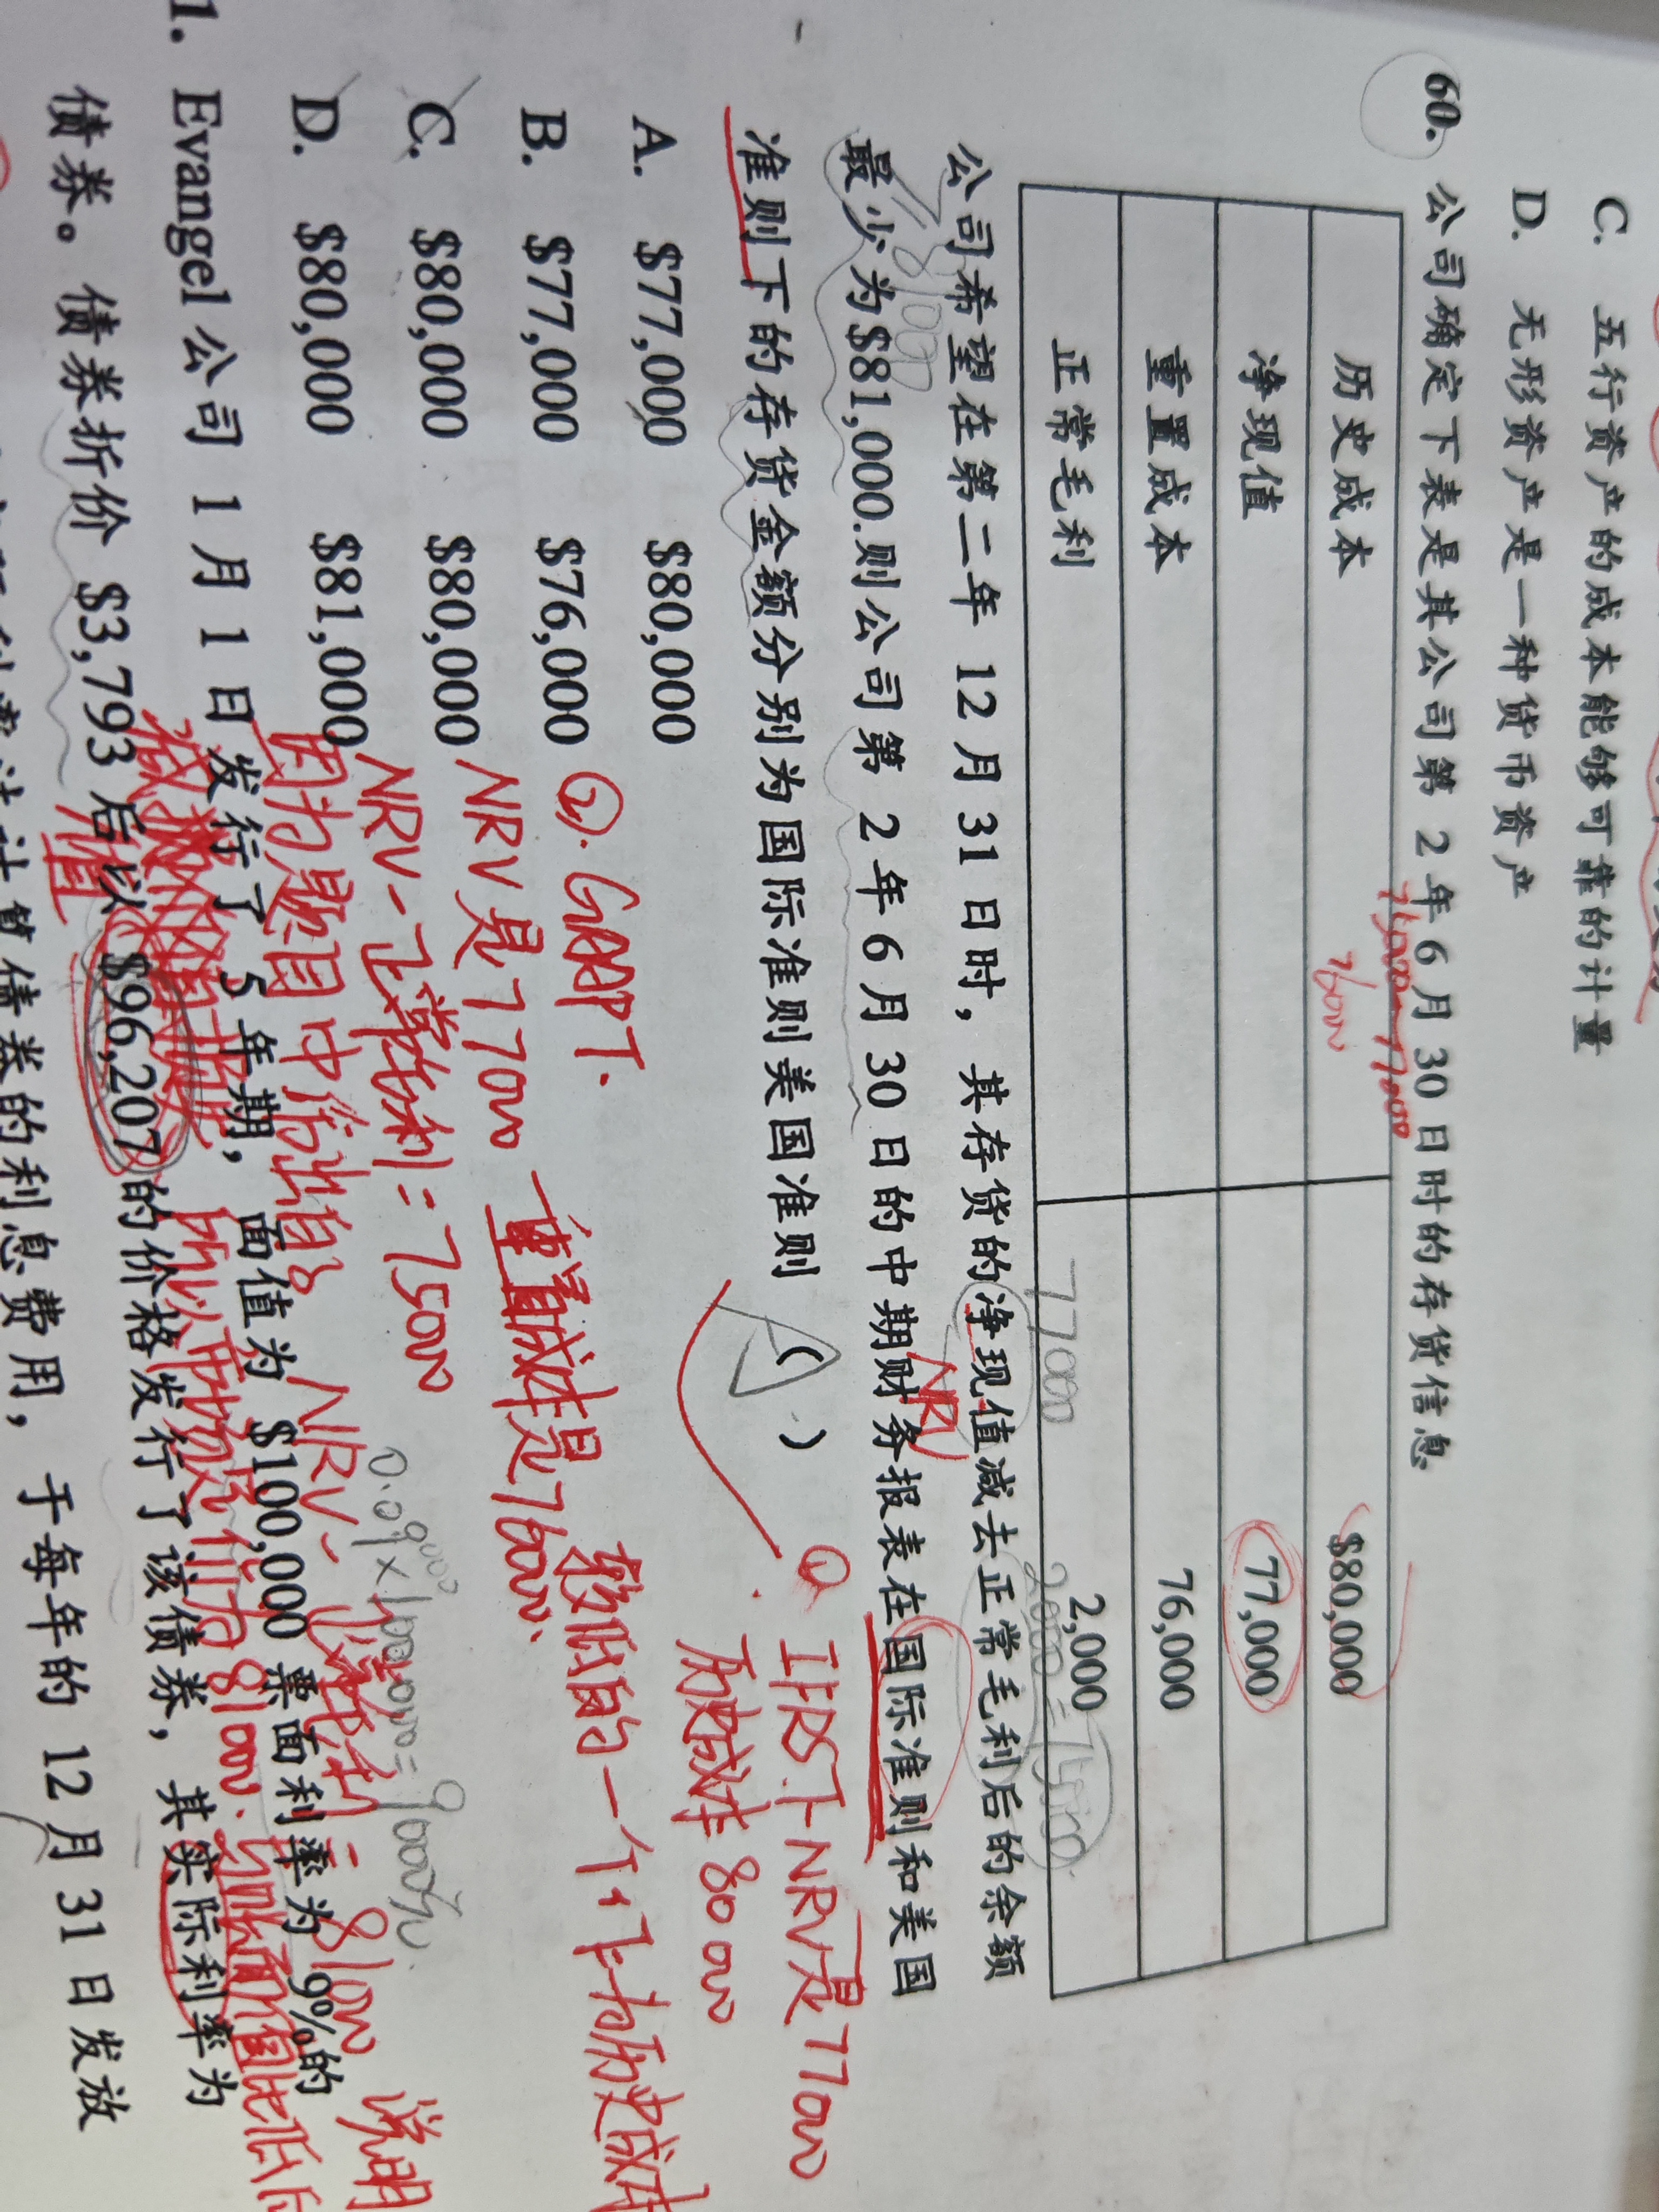 C. 五行资产的成本能够可靠的计量
D. 无形资产是一种货币资产
60. 公司确定下表是其公司第 2 年 6 月 30 日时的存货信息
75000~77000
76000
历史成本 $80,000
净现值 77,000
重置成本 76,000
正常毛利 2,000
77000 2000=75000
公司希望在第二年 12 月 31 日时，其存货的净现值减去正常毛利后的余额
NRV
最少为$81,000.则公司第 2 年 6 月 30 日的中期财务报表在国际准则和美国
81000
准则下的存货金额分别为国际准则美国准则 ( )
A
A. $77,000 $80,000
B. $77,000 $76,000
C. $80,000 $80,000
D. $80,000 $81,000
① IFRS下NRV是77000
历史成本 80000
②. GAAP下.
NRV是77000 重置成本是76000.
NRV-正常毛利=75000
较低的一个,下与历史成本
因为题目中给出
NRV-正常毛利=81000 说明
减值
0.09×100000=9000
1. Evangel 公司 1 月 1 日发行了 5 年期，面值为 $100,000 票面利率为 9%的
债券。债券折价 $3,793 后以 $96,207 的价格发行了该债券，其实际利率为
计算债券的利息费用，于每年的 12 月 31 日发放